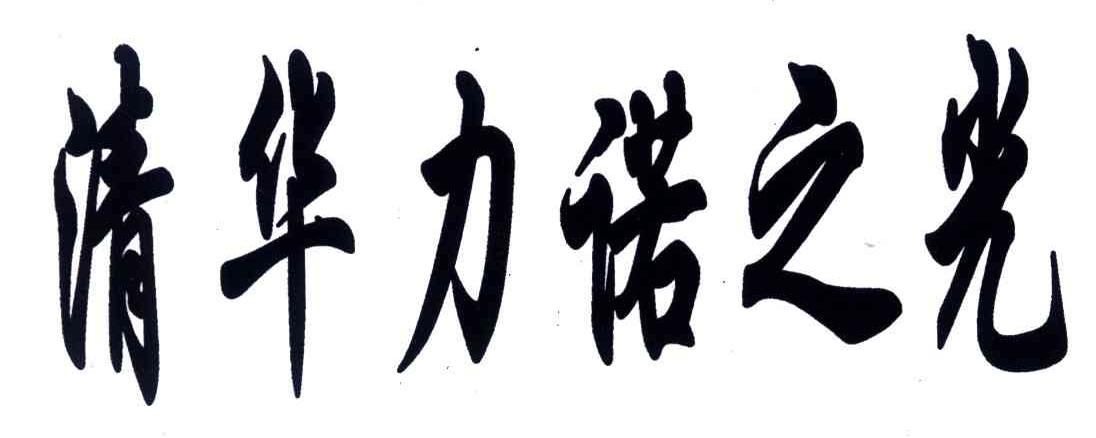 清华力诺之光